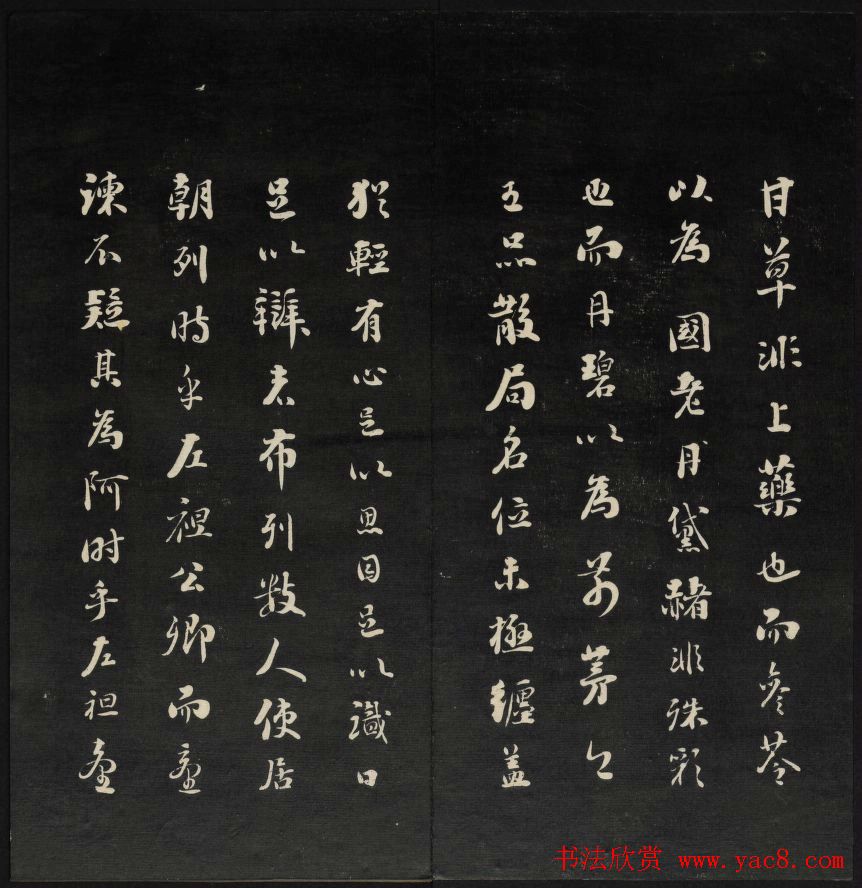 甘草非上藥也而參苓
以為國老丹黛赭非殊彩
也而丹碧以為前茅今
五品散局名位未極纏蓋
猶輕有心足以思目足以識口
足以辯者布列數人使居
朝列時乎左袒公卿而臺
諫不疑其為阿時乎左袒臺
书法欣赏 www.yac8.com